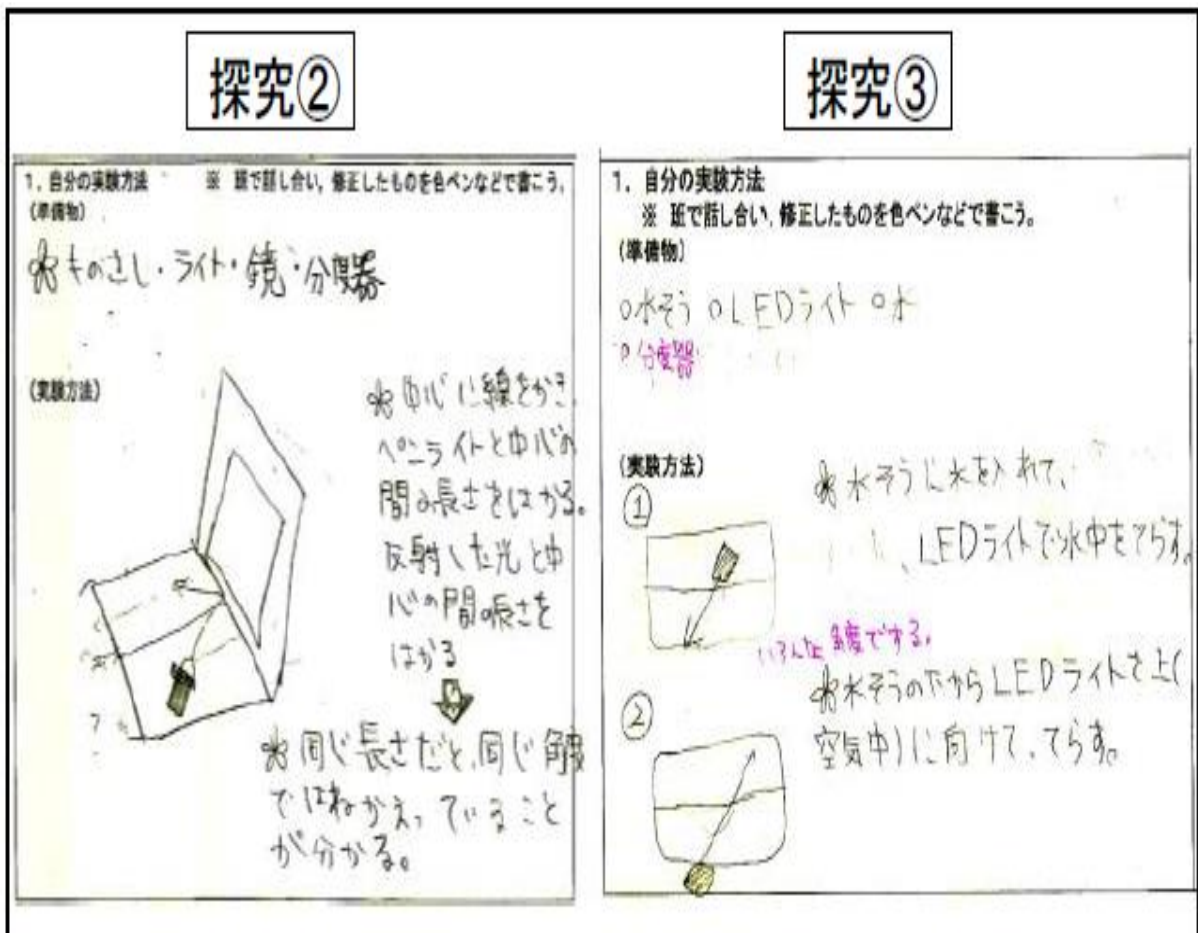 探究②
1．自分の実験方法　　※ 班で話し合い，修正したものを色ペンなどで書こう。
(準備物)
ものさし・ライト・鏡・分度器
(実験方法)
中心に線をかき、
ペンライトと中心の
間の長さをはかる。
反射した光と中
心の間の長さを
はかる
同じ長さだと、同じ角度
ではねかえっていること
が分かる。
探究③
1．自分の実験方法
※ 班で話し合い，修正したものを色ペンなどで書こう。
(準備物)
○水そう ○LEDライト ○水
○分度器
(実験方法)
①
水そうに水を入れて、
LEDライトで水中をてらす。
いろんな角度でする。
②
水そうの下からLEDライトを上(
空気中)に向けて、てらす。